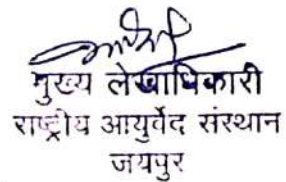 मुख्य लेखाधिकारी
राष्ट्रीय आयुर्वेद संस्थान
जयपुर